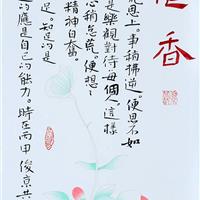 香
事稍拂逆。便思不如
是樂觀對待每個人。這樣
心稍怠荒。便想
精神自奮。
足。知
的應是自己的能力。時在丙申